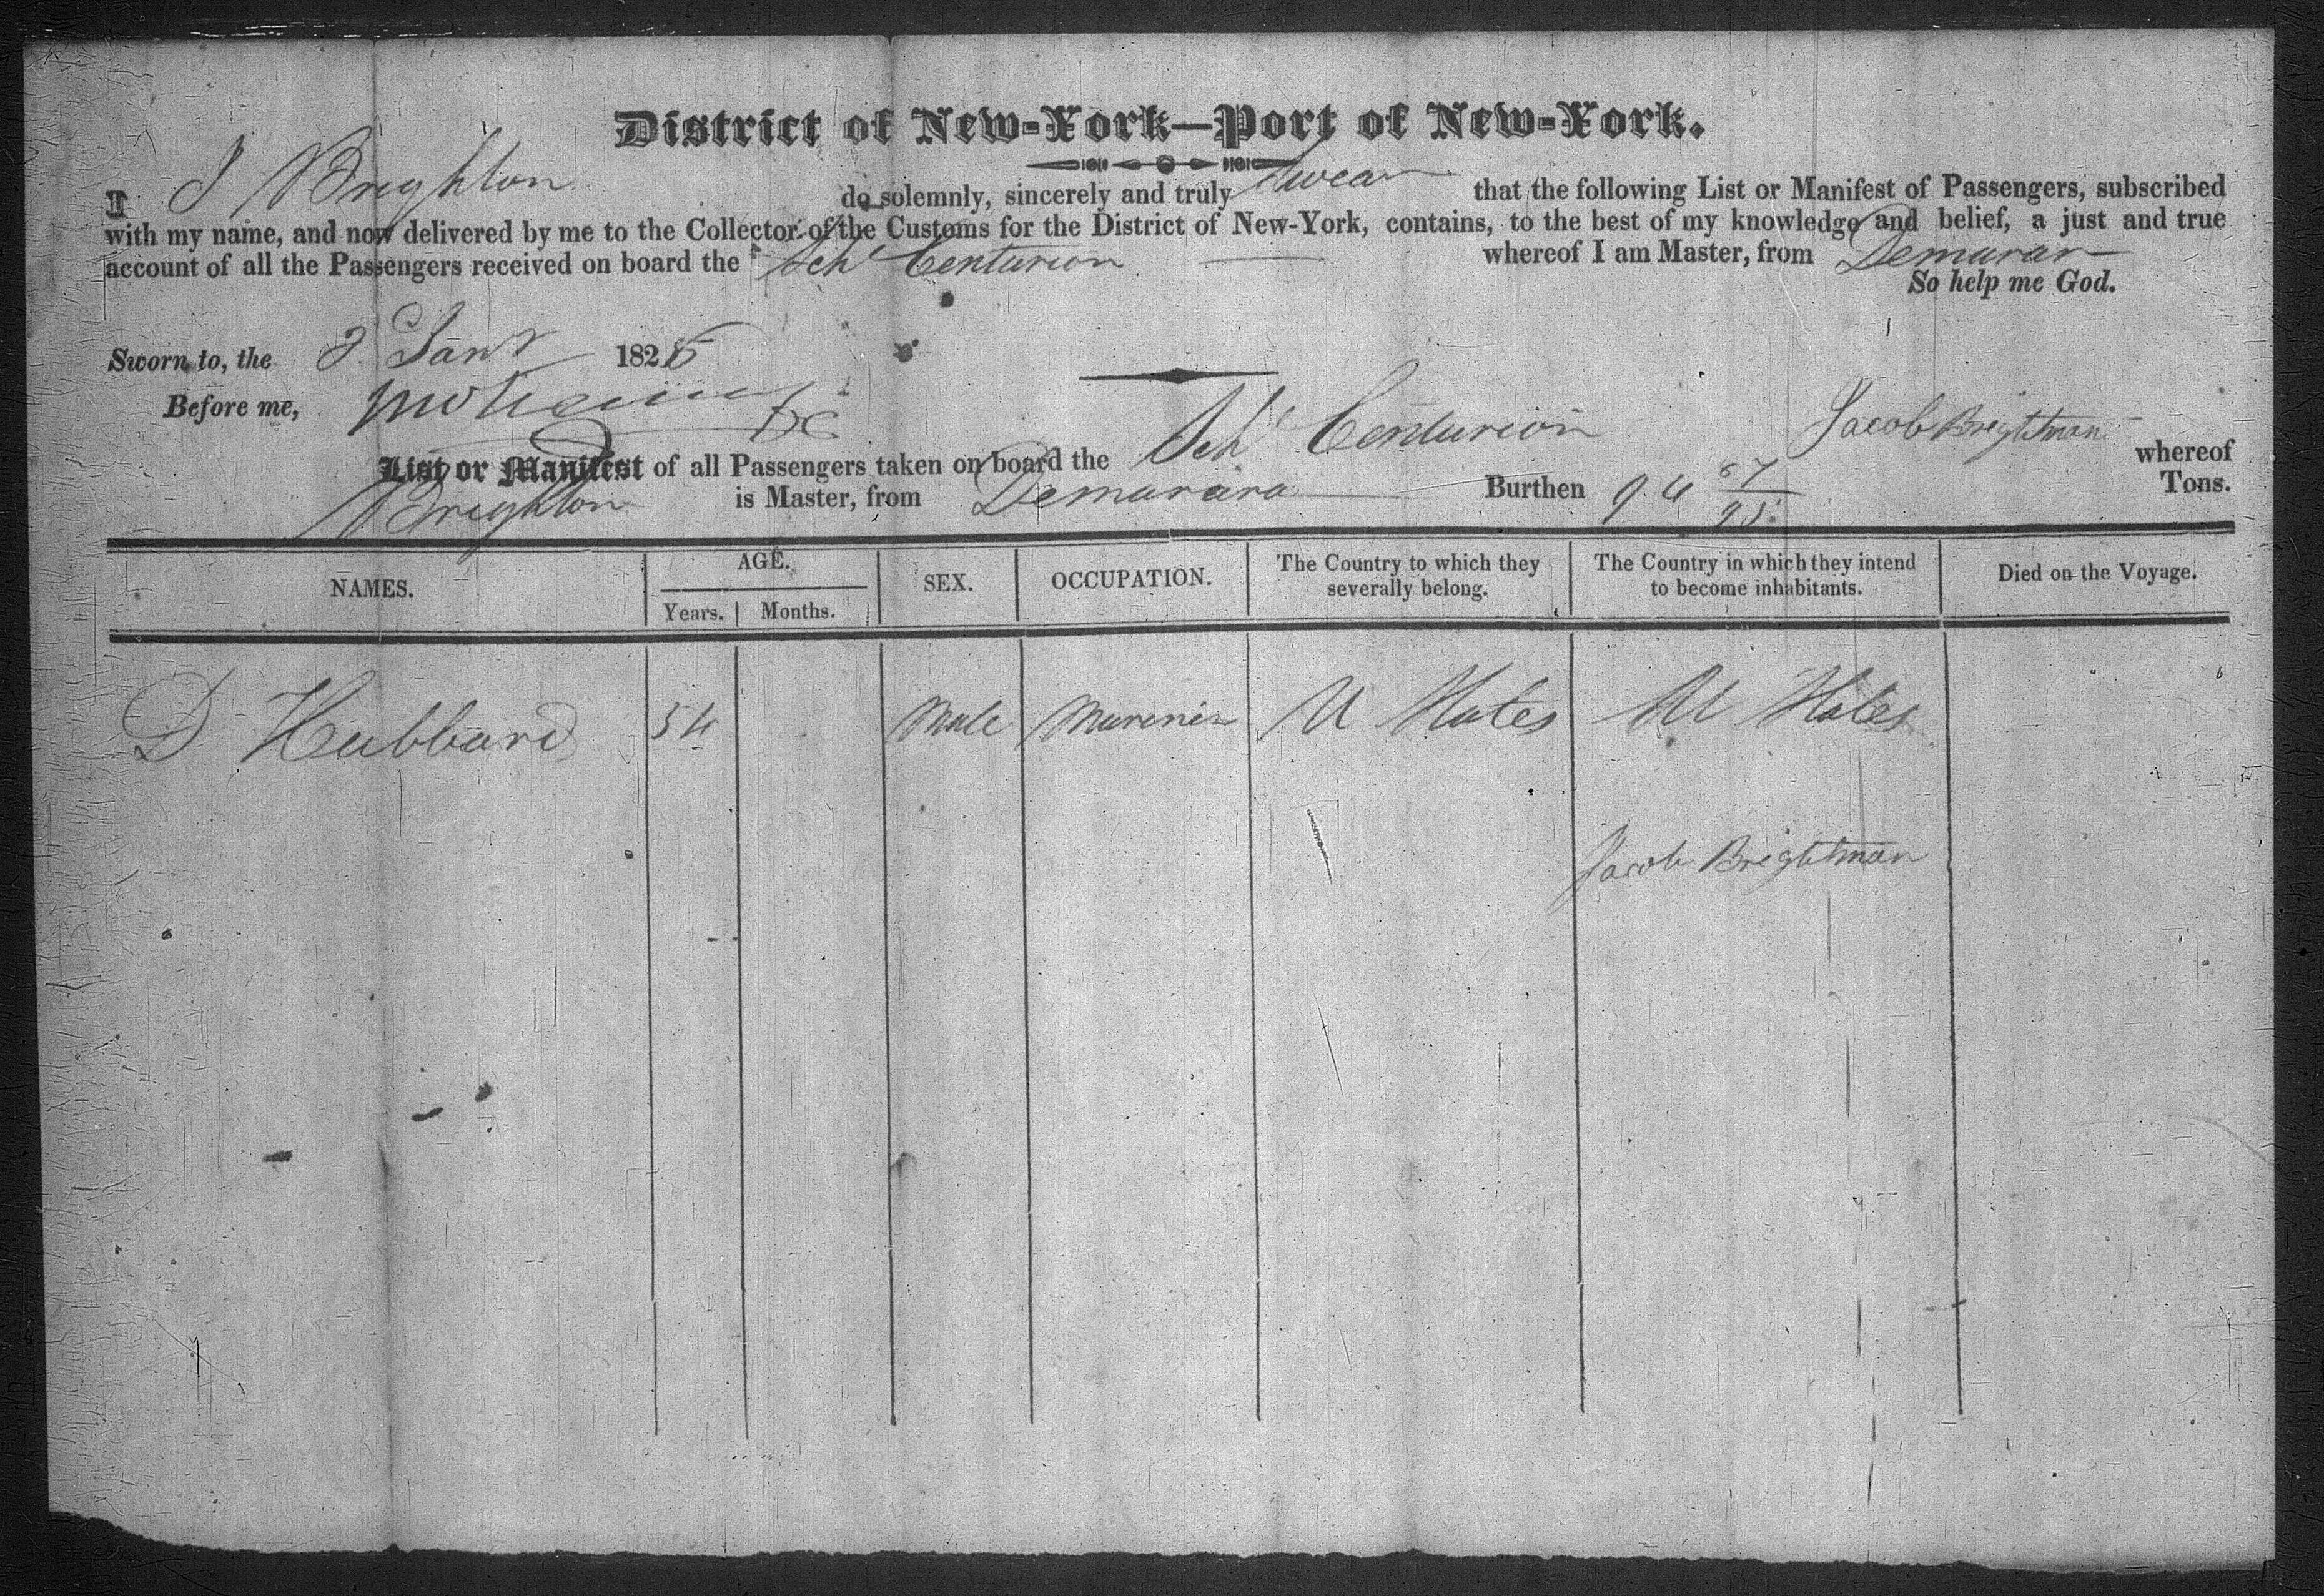 District of New-York—Port of New-York.
I J Brighton do solemnly, sincerely and truly swear that the following List or Manifest of Passengers, subscribed
with my name, and now delivered by me to the Collector of the Customs for the District of New-York, contains, to the best of my knowledge and belief, a just and true
account of all the Passengers received on board the Schr Centurion whereof I am Master, from Demarar
So help me God.
Sworn to, the Jany 182
Before me,
Jacob Brightman
List or Manifest of all Passengers taken on board the Schr Centurion whereof
Brighton is Master, from Demarara Burthen 94 87/95 Tons.
NAMES. AGE. Years. Months. SEX. OCCUPATION. The Country to which they severally belong. The Country in which they intend to become inhabitants. Died on the Voyage.
D Hubbard 54 Male Mariner U States U States
Jacob Brightman